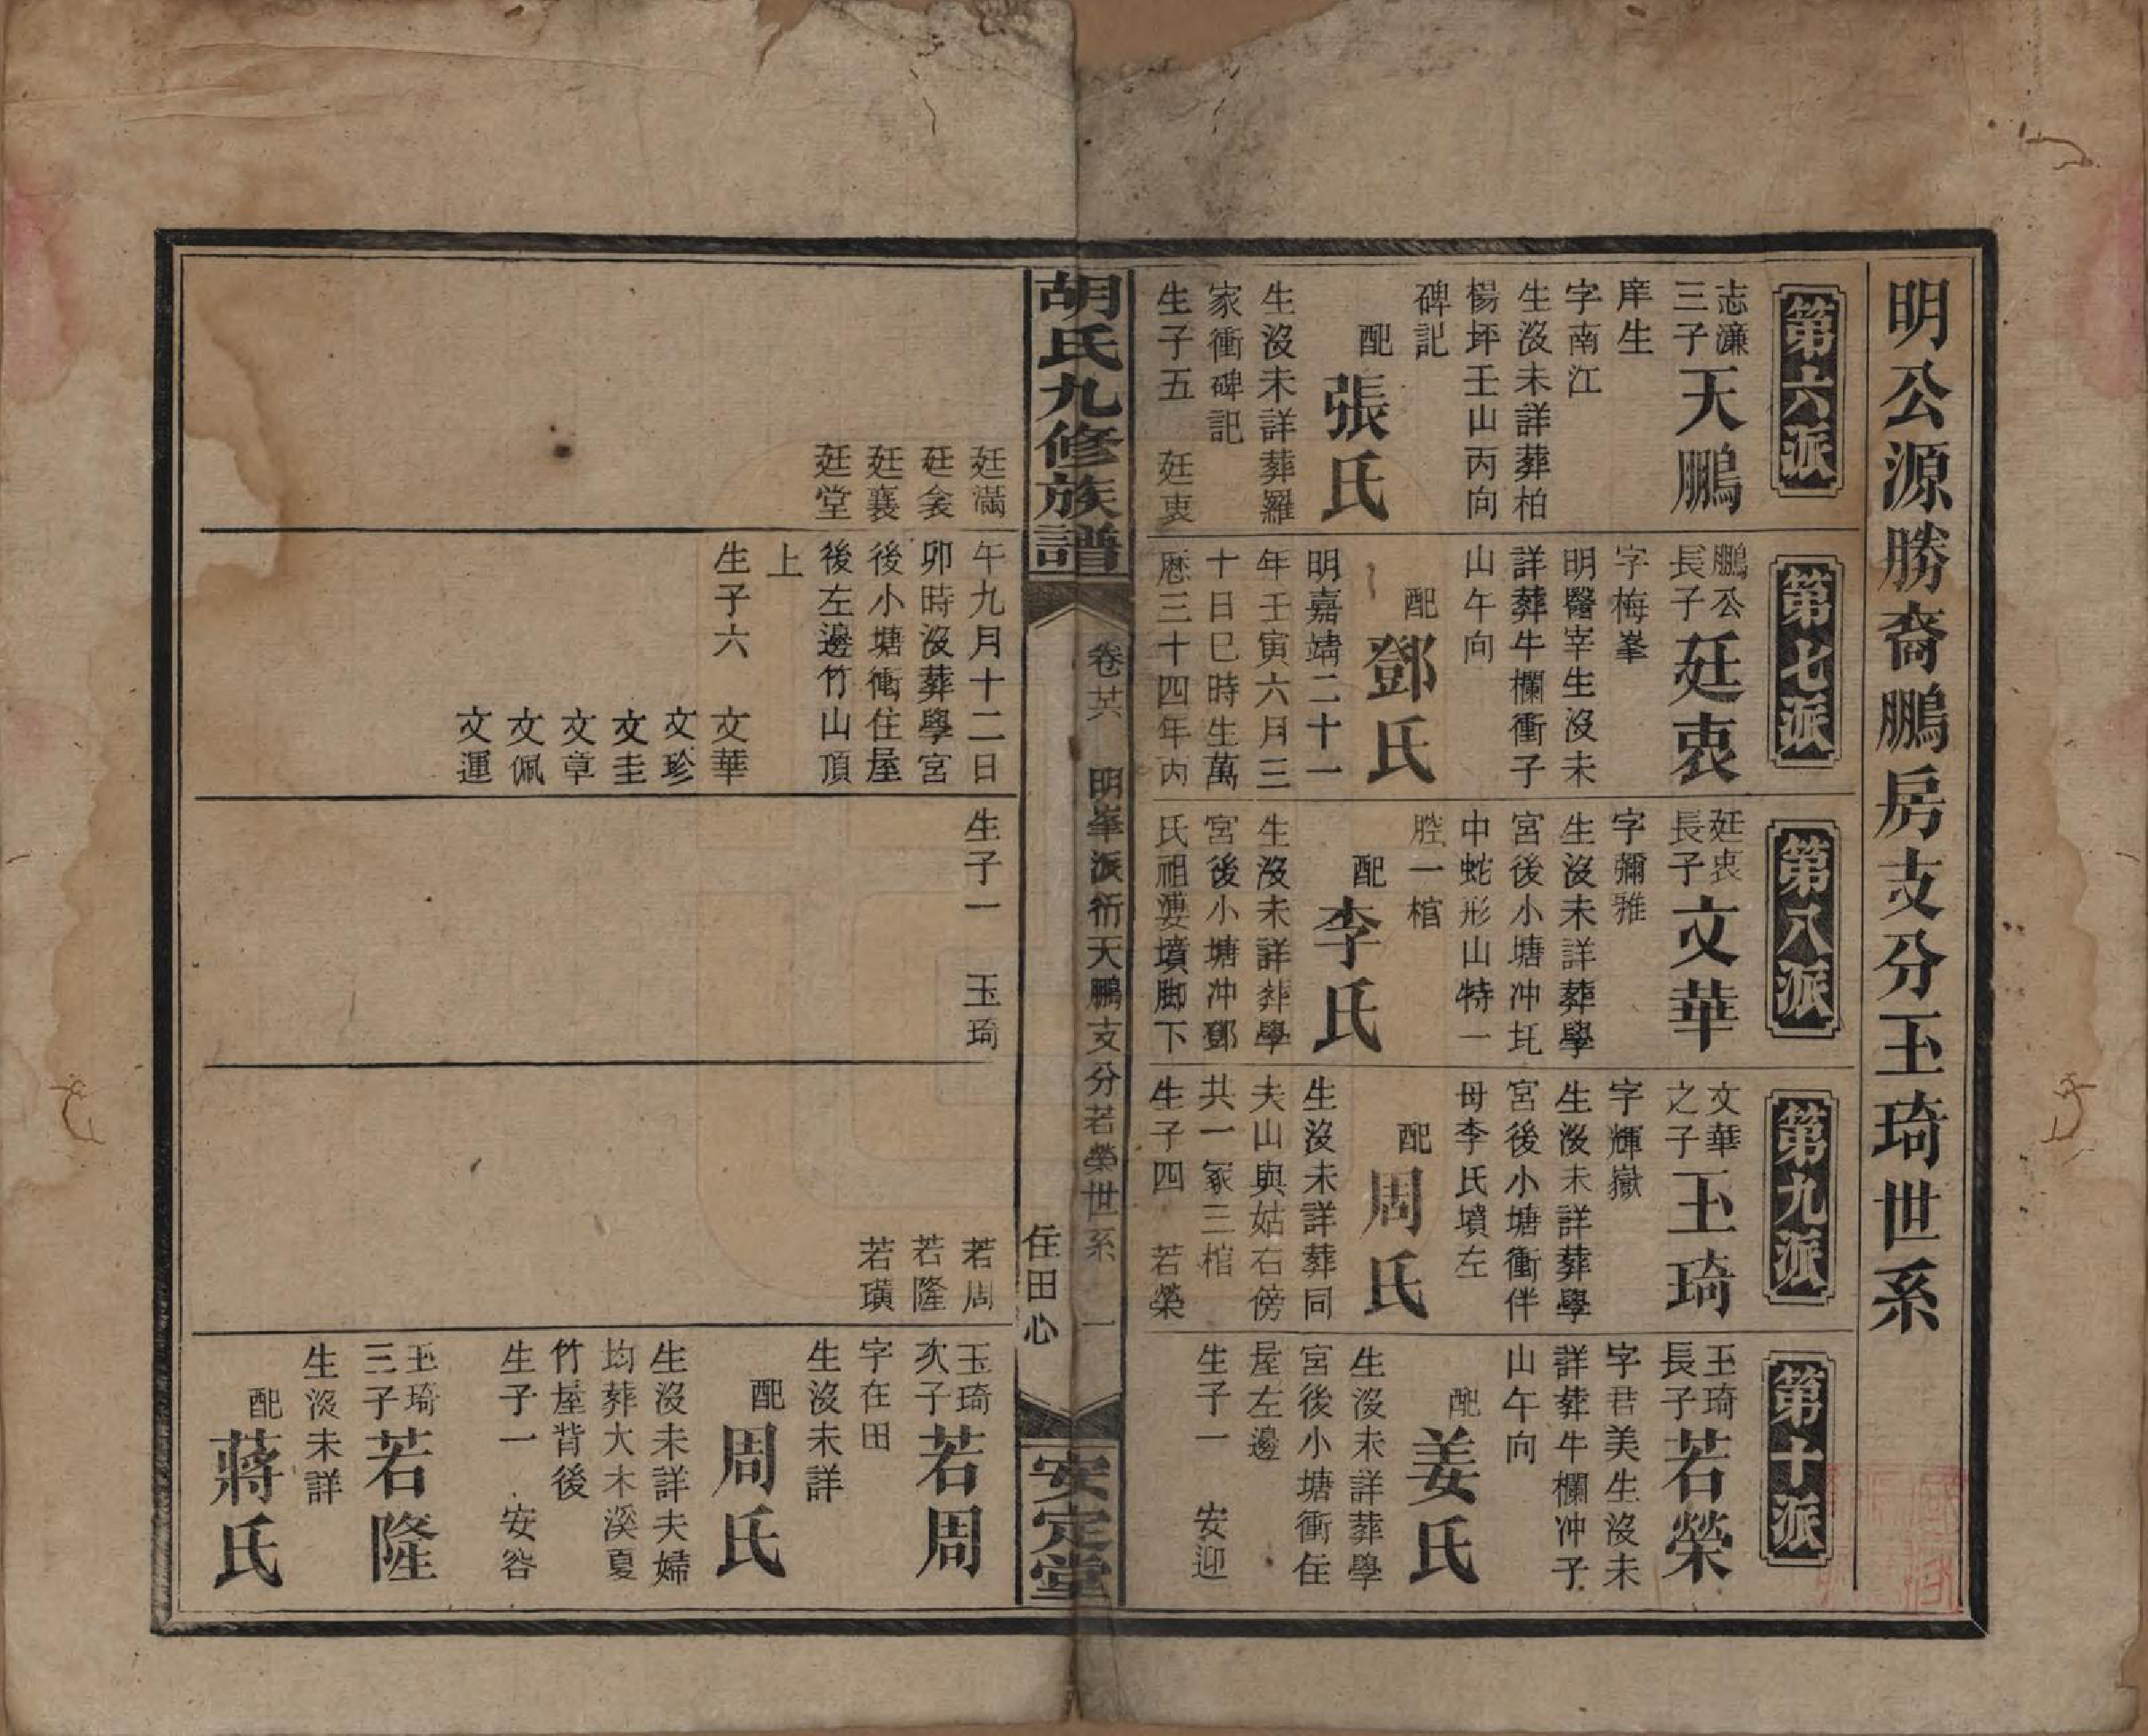 明公源勝裔鵬房支分玉琦世系
第六派
志濂
三子
天鵬
庠生
字南江
生沒未詳葬柏
楊坪壬山丙向
碑記
配
張氏
生沒未詳葬羅
家衝碑記
生子五　廷衷
第七派
鵬公
長子
廷衷
字梅峯
明醫宰生沒未
詳葬牛欄衝子
山午向
配
鄧氏
明嘉靖二十一
年壬寅六月三
十日巳時生萬
厯三十四年丙
第八派
廷衷
長子
文華
字彌雅
生沒未詳葬學
宮後小塘冲圫
中蛇形山特一
腔一棺
配
李氏
生沒未詳葬學
宮後小塘冲鄧
氏祖婆墳脚下
第九派
文華
之子
玉琦
字輝嶽
生沒未詳葬學
宮後小塘衝伴
母李氏墳左
配
周氏
生沒未詳葬同
夫山與姑右傍
共一冢三棺
生子四　若榮
第十派
玉琦
長子
若榮
字君美生沒未
詳葬牛欄冲子
山午向
配
姜氏
生沒未詳葬學
宮後小塘衝住
屋左邊
生子一　安迎
胡氏九修族譜
卷　明峯派衍天鵬支分若榮世系　一
住田心
安定堂
廷滿
廷
廷襄
廷堂
午九月十二日
卯時沒葬學宮
後小塘衝住屋
後左邊竹山頂
上
生子六　文華
文珍
文圭
文章
文佩
文運
生子一　玉琦
若周
若隆
若璜
玉琦
次子
若周
字在田
生沒未詳
配
周氏
生沒未詳夫婦
均葬大木溪夏
竹屋背後
生子一　安容
玉琦
三子
若隆
生沒未詳
配
蔣氏